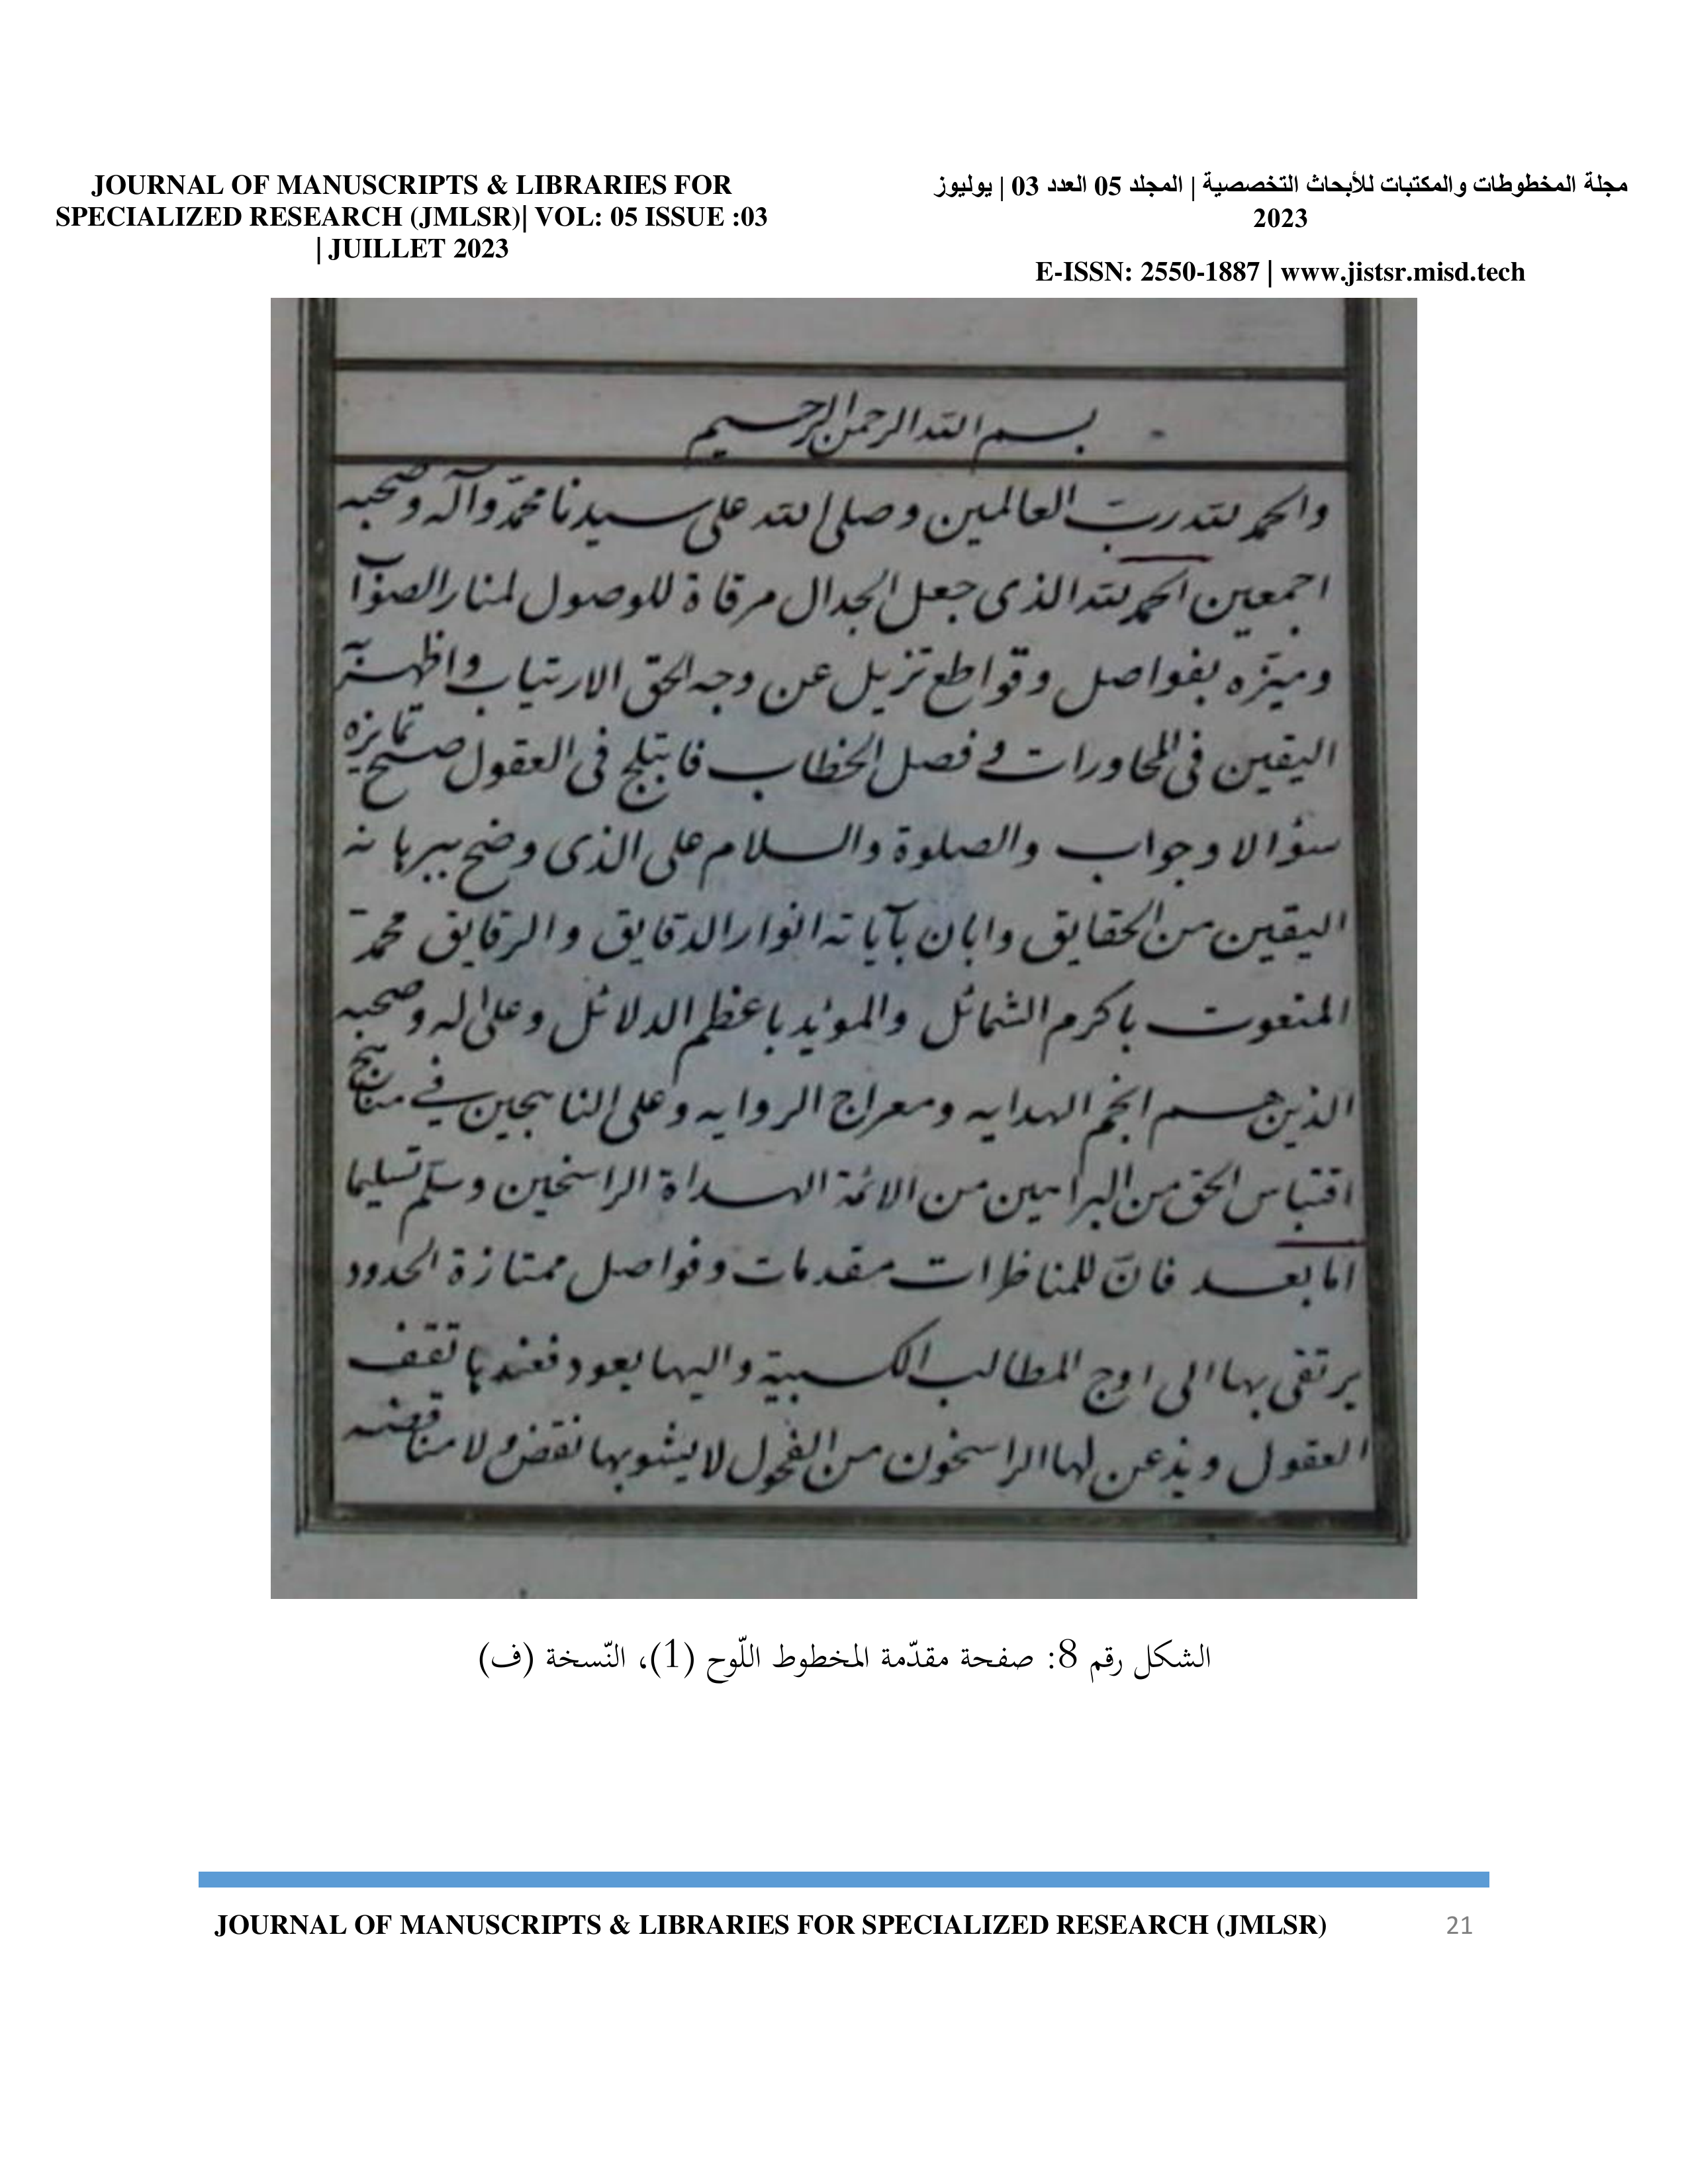 JOURNAL OF MANUSCRIPTS & LIBRARIES FOR
SPECIALIZED RESEARCH (JMLSR)| VOL: 05 ISSUE :03
| JUILLET 2023
مجلة المخطوطات والمكتبات للأبحاث التخصصية | المجلد 05 العدد 03 | يوليوز
2023
E-ISSN: 2550-1887 | www.jistsr.misd.tech
بسم الله الرحمن الرحيم
والحمد لله رب العالمين وصلى الله على سيدنا محمد وآله وصحبه
اجمعين الحمد لله الذى جعل الجدال مرقاة للوصول لمنار الصواب
وميزه بفواصل وقواطع تزيل عن وجه الحق الارتياب واظهر
اليقين فى المحاورات فى فصل الخطاب فابتلج فى العقول صبح تمايزه
سؤالا وجواب والصلوة والسلام على الذى وضح ببرهانه
اليقين من الحقايق وابان بآياته انوار الدقايق والرقايق محمد
المنعوت باكرم الشمائل والمؤيد باعظم الدلائل وعلى اله وصحبه
الذين هم انجم الهدايه ومعراج الروايه وعلى الناهجين في مناهج
اقتباس الحق من البراهين من الائمة الهداة الراسخين وسلم تسليما
اما بعد فان للمناظرات مقدمات وفواصل ممتازة الحدود
يرتقى بها الى اوج المطالب الكسبية واليها يعود فعندها تقف
العقول ويذعن لها الراسخون من الفحول لا يشوبها نقض ولا مناقضه
الشكل رقم 8: صفحة مقدّمة المخطوط اللّوح (1)، النّسخة (ف)
JOURNAL OF MANUSCRIPTS & LIBRARIES FOR SPECIALIZED RESEARCH (JMLSR) 21